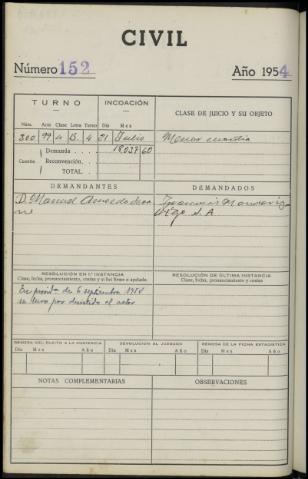 CIVIL
Número 152 Año 1954
TURNO INCOACIÓN CLASE DE JUICIO Y SU OBJETO
Núm. Año Clase Letra Turno Día Mes
300 99 4 B. 4 21 Julio Menor cuantía
Cuantía Demanda 18.037,60
Reconvención
TOTAL
DEMANDANTES DEMANDADOS
D. Manuel
Vigo S.A
RESOLUCIÓN EN 1ª INSTANCIA RESOLUCIÓN DE ÚLTIMA INSTANCIA
Clase, fecha, pronunciamiento, costas y si fué firme o apelada. Clase, fecha, pronunciamiento y costas
En de 6 septiembre 1954
se tuvo por desistido al actor
DEVOLUCIÓN AL JUZGADO REMESA DE LA FICHA ESTADÍSTICA
Día Mes Año Día Mes Año Día Mes Año
NOTAS COMPLEMENTARIAS OBSERVACIONES